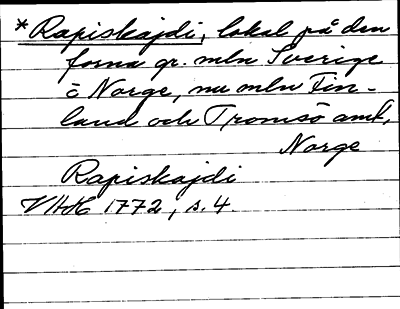 * Rapiskajdi, lokal på den
forna gr. mln Sverige
o Norge, nu mln Fin-
land och Tromsö amt,
Norge
Rapiskajdi
VHAH 1772, s. 4.